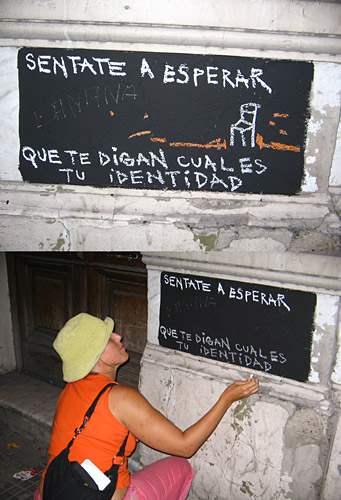 SENTATE A ESPERAR
BANANA
QUE TE DIGAN CUAL ES
TU IDENTIDAD
SENTATE A ESPERAR
QUE TE DIGAN CUAL ES
TU IDENTIDAD